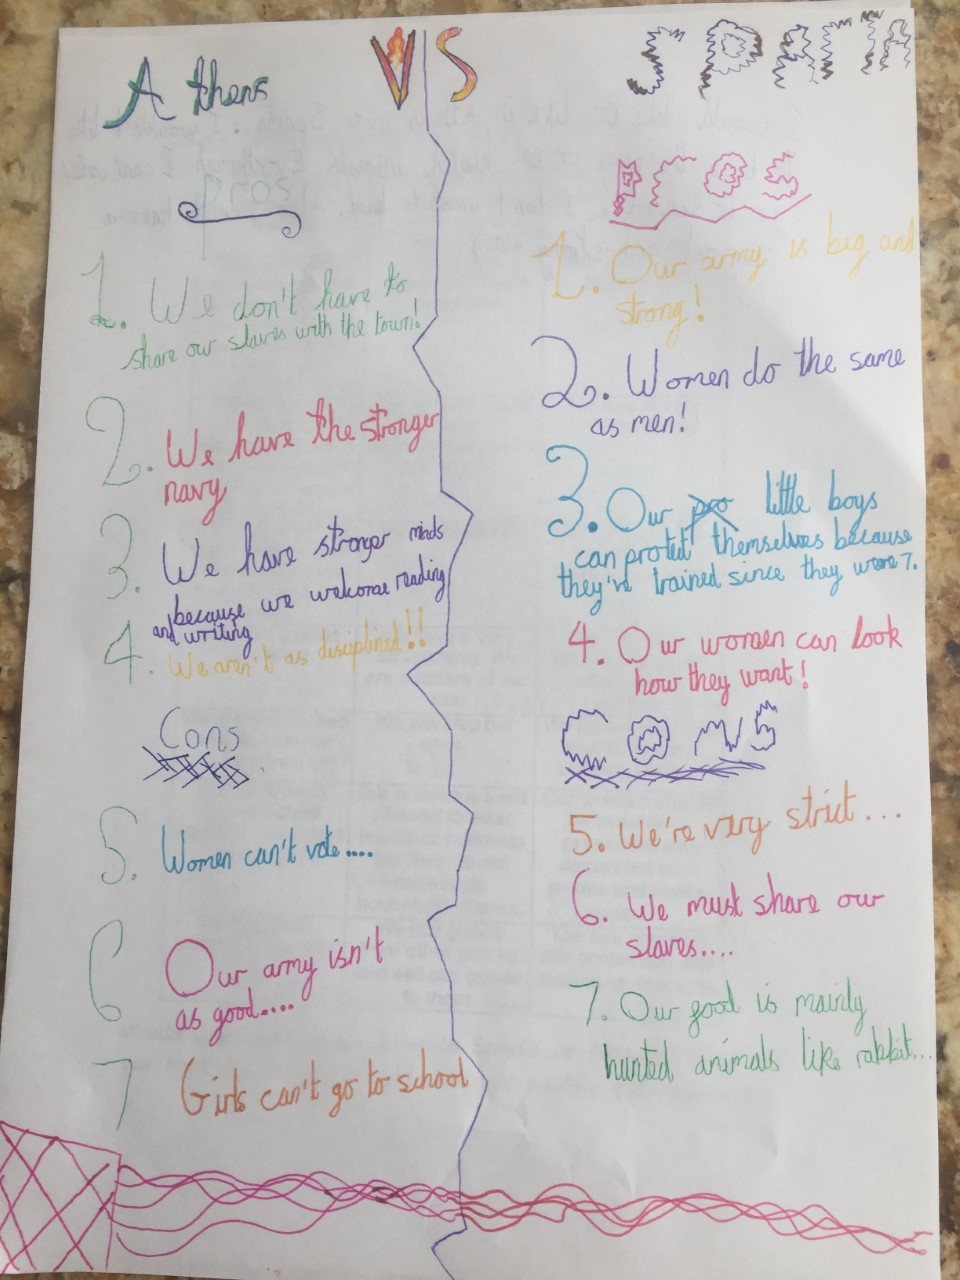 Athens
VS
Sparta
pros
1. We don't have to
share our slaves with the town!
2. We have the stronger
navy
3. We have stronger minds
because we welcome reading
and writing
4. We aren't as disciplined!!
Cons
5. Women can't vote....
6 Our army isn't
as good....
7 Girls can't go to school
Pros
1. Our army is big and
strong!
2. Women do the same
as men!
3. Our pro little boys
can protect themselves because
they've trained since they were 7.
4. Our women can look
how they want!
Cons
5. We're very strict...
6. We must share our
slaves....
7. Our food is mainly
hunted animals like rabbit...